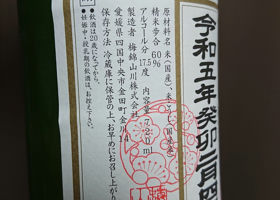 令和五年癸卯二月四
原材料名 米(国産)、米こうじ(国産米)
精米歩合 60%
アルコール分 17.5度 内容量 720ml
製造者 梅錦山川株式会社
愛媛県四国中央市金田町金川14
保存方法 冷蔵庫に保管の上、お早めにお召し上がり
●飲酒は20歳になってから。
●妊娠中・授乳期の飲酒は、お控え下さい。